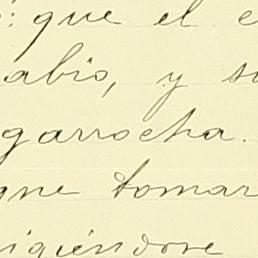 : que el e
abio, y su
garrocha.
que tomar
igiéndose